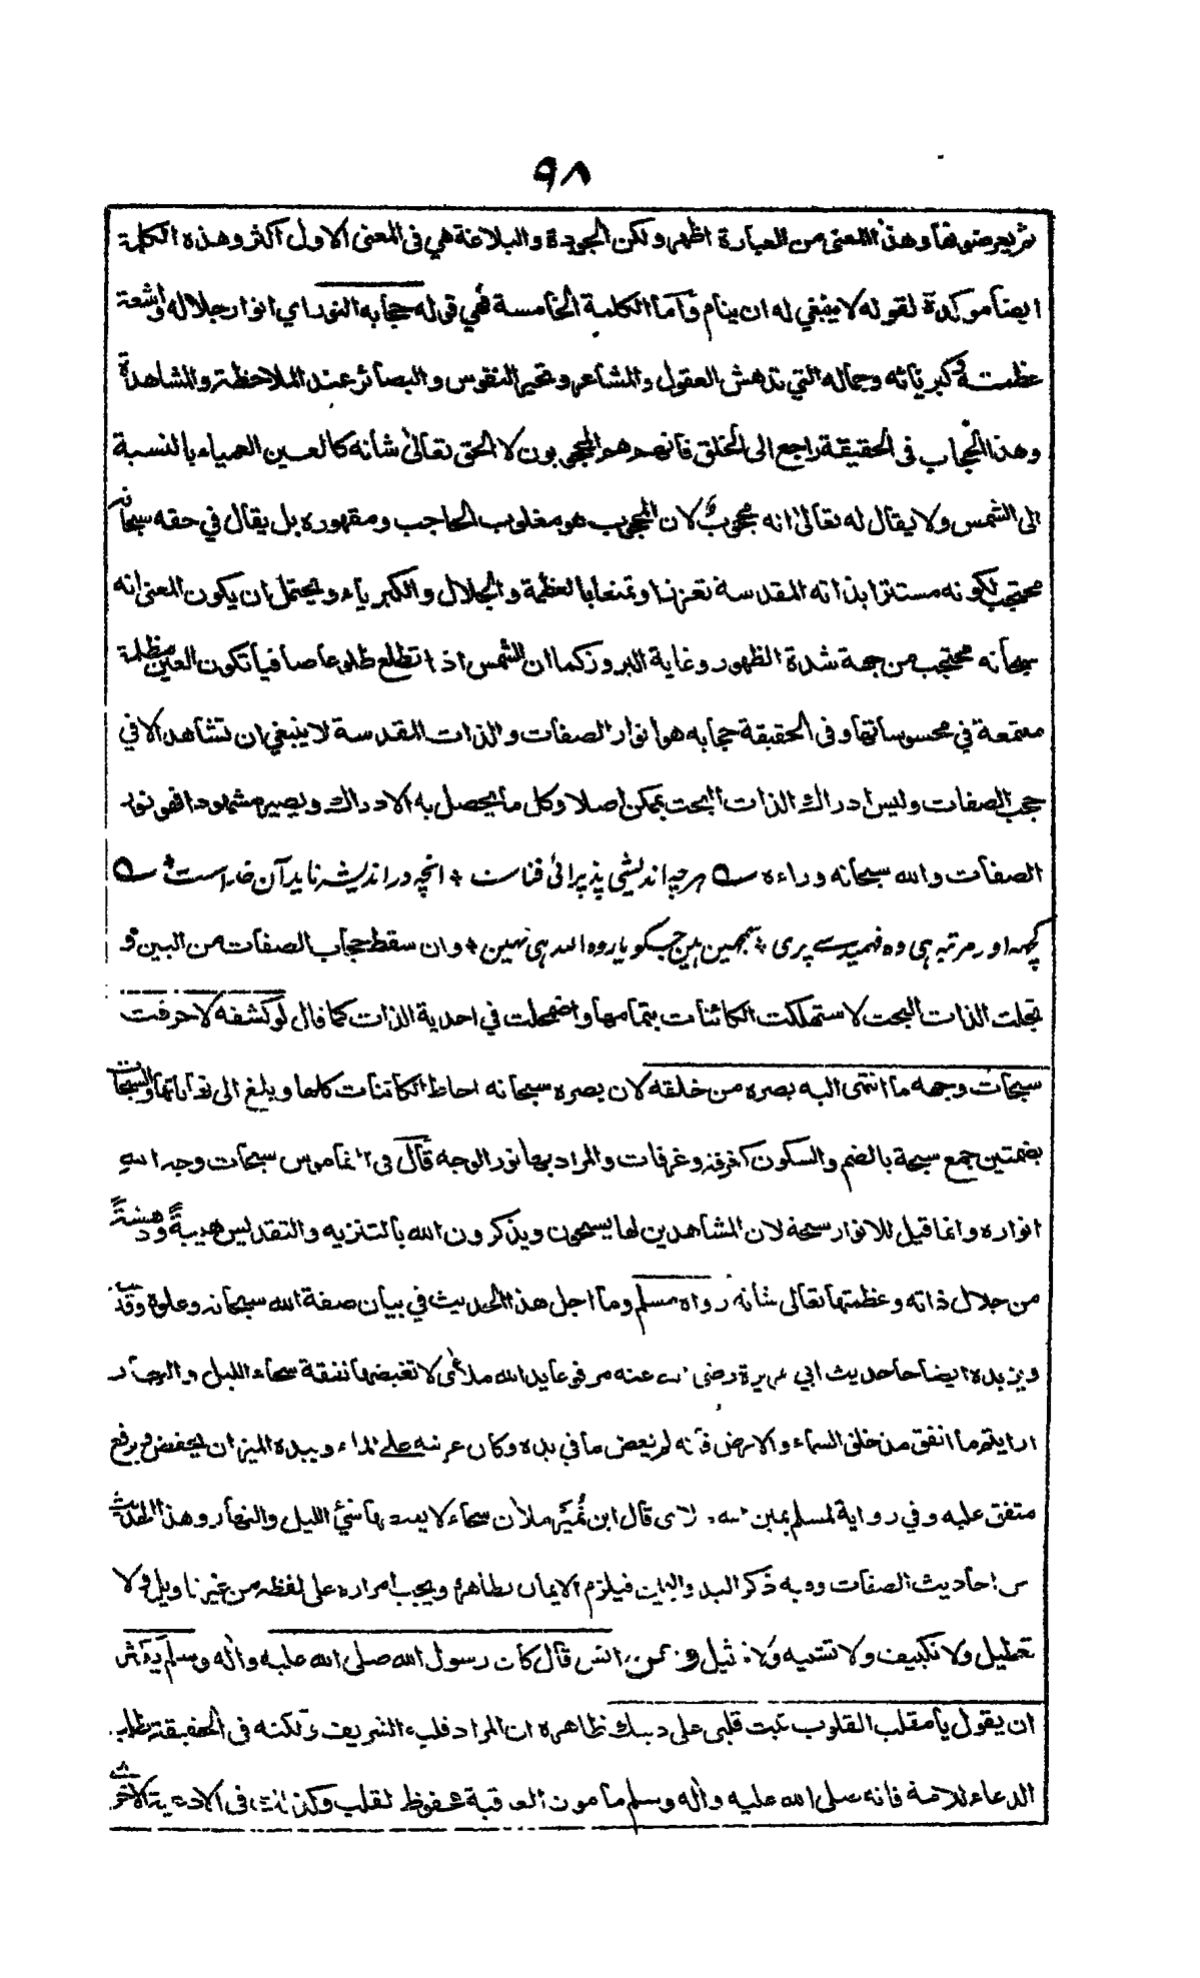 ٩٨
ثم يعرضونها وهذا المعنى من العبارة اظهر ولكن الجودة والبلاغة هي في المعنى الاول اكثر وهذه الكلمة
ايضا موكدة لقوله لا ينبغي له ان ينام وأما الكلمة الخامسة فهي قوله حجابه النور اي انوار جلاله واشعة
عظمته وكبريائه وجماله التي تدهش العقول والمشاعر وتحير النفوس والبصائر عند الملاحظة والمشاهدة
وهذا الحجاب في الحقيقة راجع الى الخلق فانهم هم المحجوبون لا الحق تعالى شأنه كالعين العمياء بالنسبة
الى الشمس ولا يقال له تعالى انه محجوب لان المحجوب هو مغلوب الحاجب ومقهوره بل يقال في حقه سبحانه
محتجب لكونه مستترا بذاته المقدسة تعززا وتمنعا بالعظمة والجلال والكبرياء ويحتمل ان يكون المعنى انه
سبحانه محتجب من جهة شدة الظهور وغاية البروز كما ان الشمس اذا تطلع طلوعا صافيا تكون العين مظلمة
ممتمعة في محسوساتها وفي الحقيقة حجابه هو انوار الصفات والذات المقدسة لا ينبغي ان تشاهد الا في
حجب الصفات وليس ادراك الذات البحت بممكن اصلا وكل ما يحصل به الادراك ويصير مشهودا فهو نور
الصفات والله سبحانه وراءه ؎ هرچه اندیشی پذیرائی فناست ٭ انچه در اندیشه ناید آن خداست ؎
کچھ اور مرتبه هی وه فهمید سے پری ٭ سمجهین هین جسکو یار وه الله هی نهین ٭ وان سقط حجاب الصفات من البين و
تجلت الذات البحت لاستهلكت الكائنات بتمامها واضمحلت في احدية الذات كما قال لو كشفه لاحرقت
سبحات وجهه ما انتهى اليه بصره من خلقه لان بصره سبحانه احاط الكائنات كلها ويبلغ الى نهاياتها والسبحات
بضمتين جمع سبحة بالضم والسكون كغرفة وغرفات والمراد بها نور الوجه قال في القاموس سبحات وجه الله
انواره وانما قيل للانوار سبحة لان المشاهدين لها يسبحون ويذكرون الله بالتنزيه والتقديس هيبةً ودهشةً
من جلال ذاته وعظمتها تعالى شأنه رواه مسلم وما اجل هذا الحديث في بيان صفة الله سبحانه وعلوه
ويزيده ايضاحا حديث ابي هريرة رضي الله عنه مرفوعا يد الله ملأى لا تغيضها نفقة سحاء الليل والنهار
ارايتم ما انفق مذ خلق السماء والارض فانه لم يغض ما في يده وكان عرشه على الماء وبيده الميزان يخفض ويرفع
متفق عليه وفي رواية لمسلم يمين الله ملأى قال ابن نُمَير ملآن سحاء لا يغيضها شيء الليل والنهار وهذا الحديث
من احاديث الصفات وبه ذكر اليد واليمين فيلزم الايمان بظاهره ويجب امراره على لفظه من غير تاويل ولا
تعطيل ولا تكييف ولا تشبيه ولا تمثيل وعن انس قال كان رسول الله صلى الله عليه وآله وسلم يكثر
ان يقول يا مقلب القلوب ثبت قلبي على دينك ظاهره ان المراد قلبه الشريف ولكنه في الحقيقة طلب
الدعاء للامة فانه صلى الله عليه وآله وسلم مأمون العاقبة محفوظ القلب وكذلك في الادعية الاخر